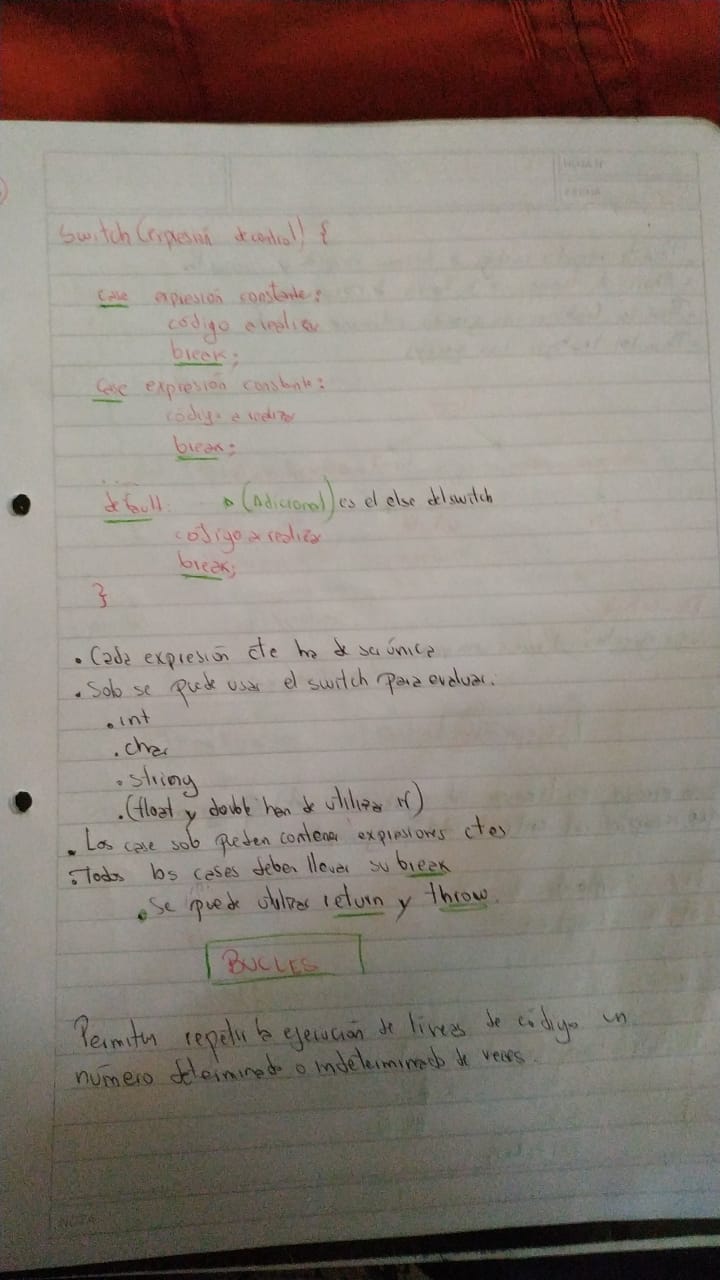 Switch (expresión de control) {
case expresión constante:
código a realizar
break;
Case expresión constante:
código a realizar
break;
...
default: (Adicional) es el else del switch
código a realizar
break;
}
• Cada expresión cte ha de ser única
• Solo se puede usar el switch para evaluar:
• int
• char
• string
• (float y double han de utilizar if)
• Los case solo pueden contener expresiones ctes
• Todos los cases deben llevar su break
• Se puede utilizar return y throw.
BUCLES
Permiten repetir la ejecución de líneas de código un
número determinado o indeterminado de veces.
NOTA